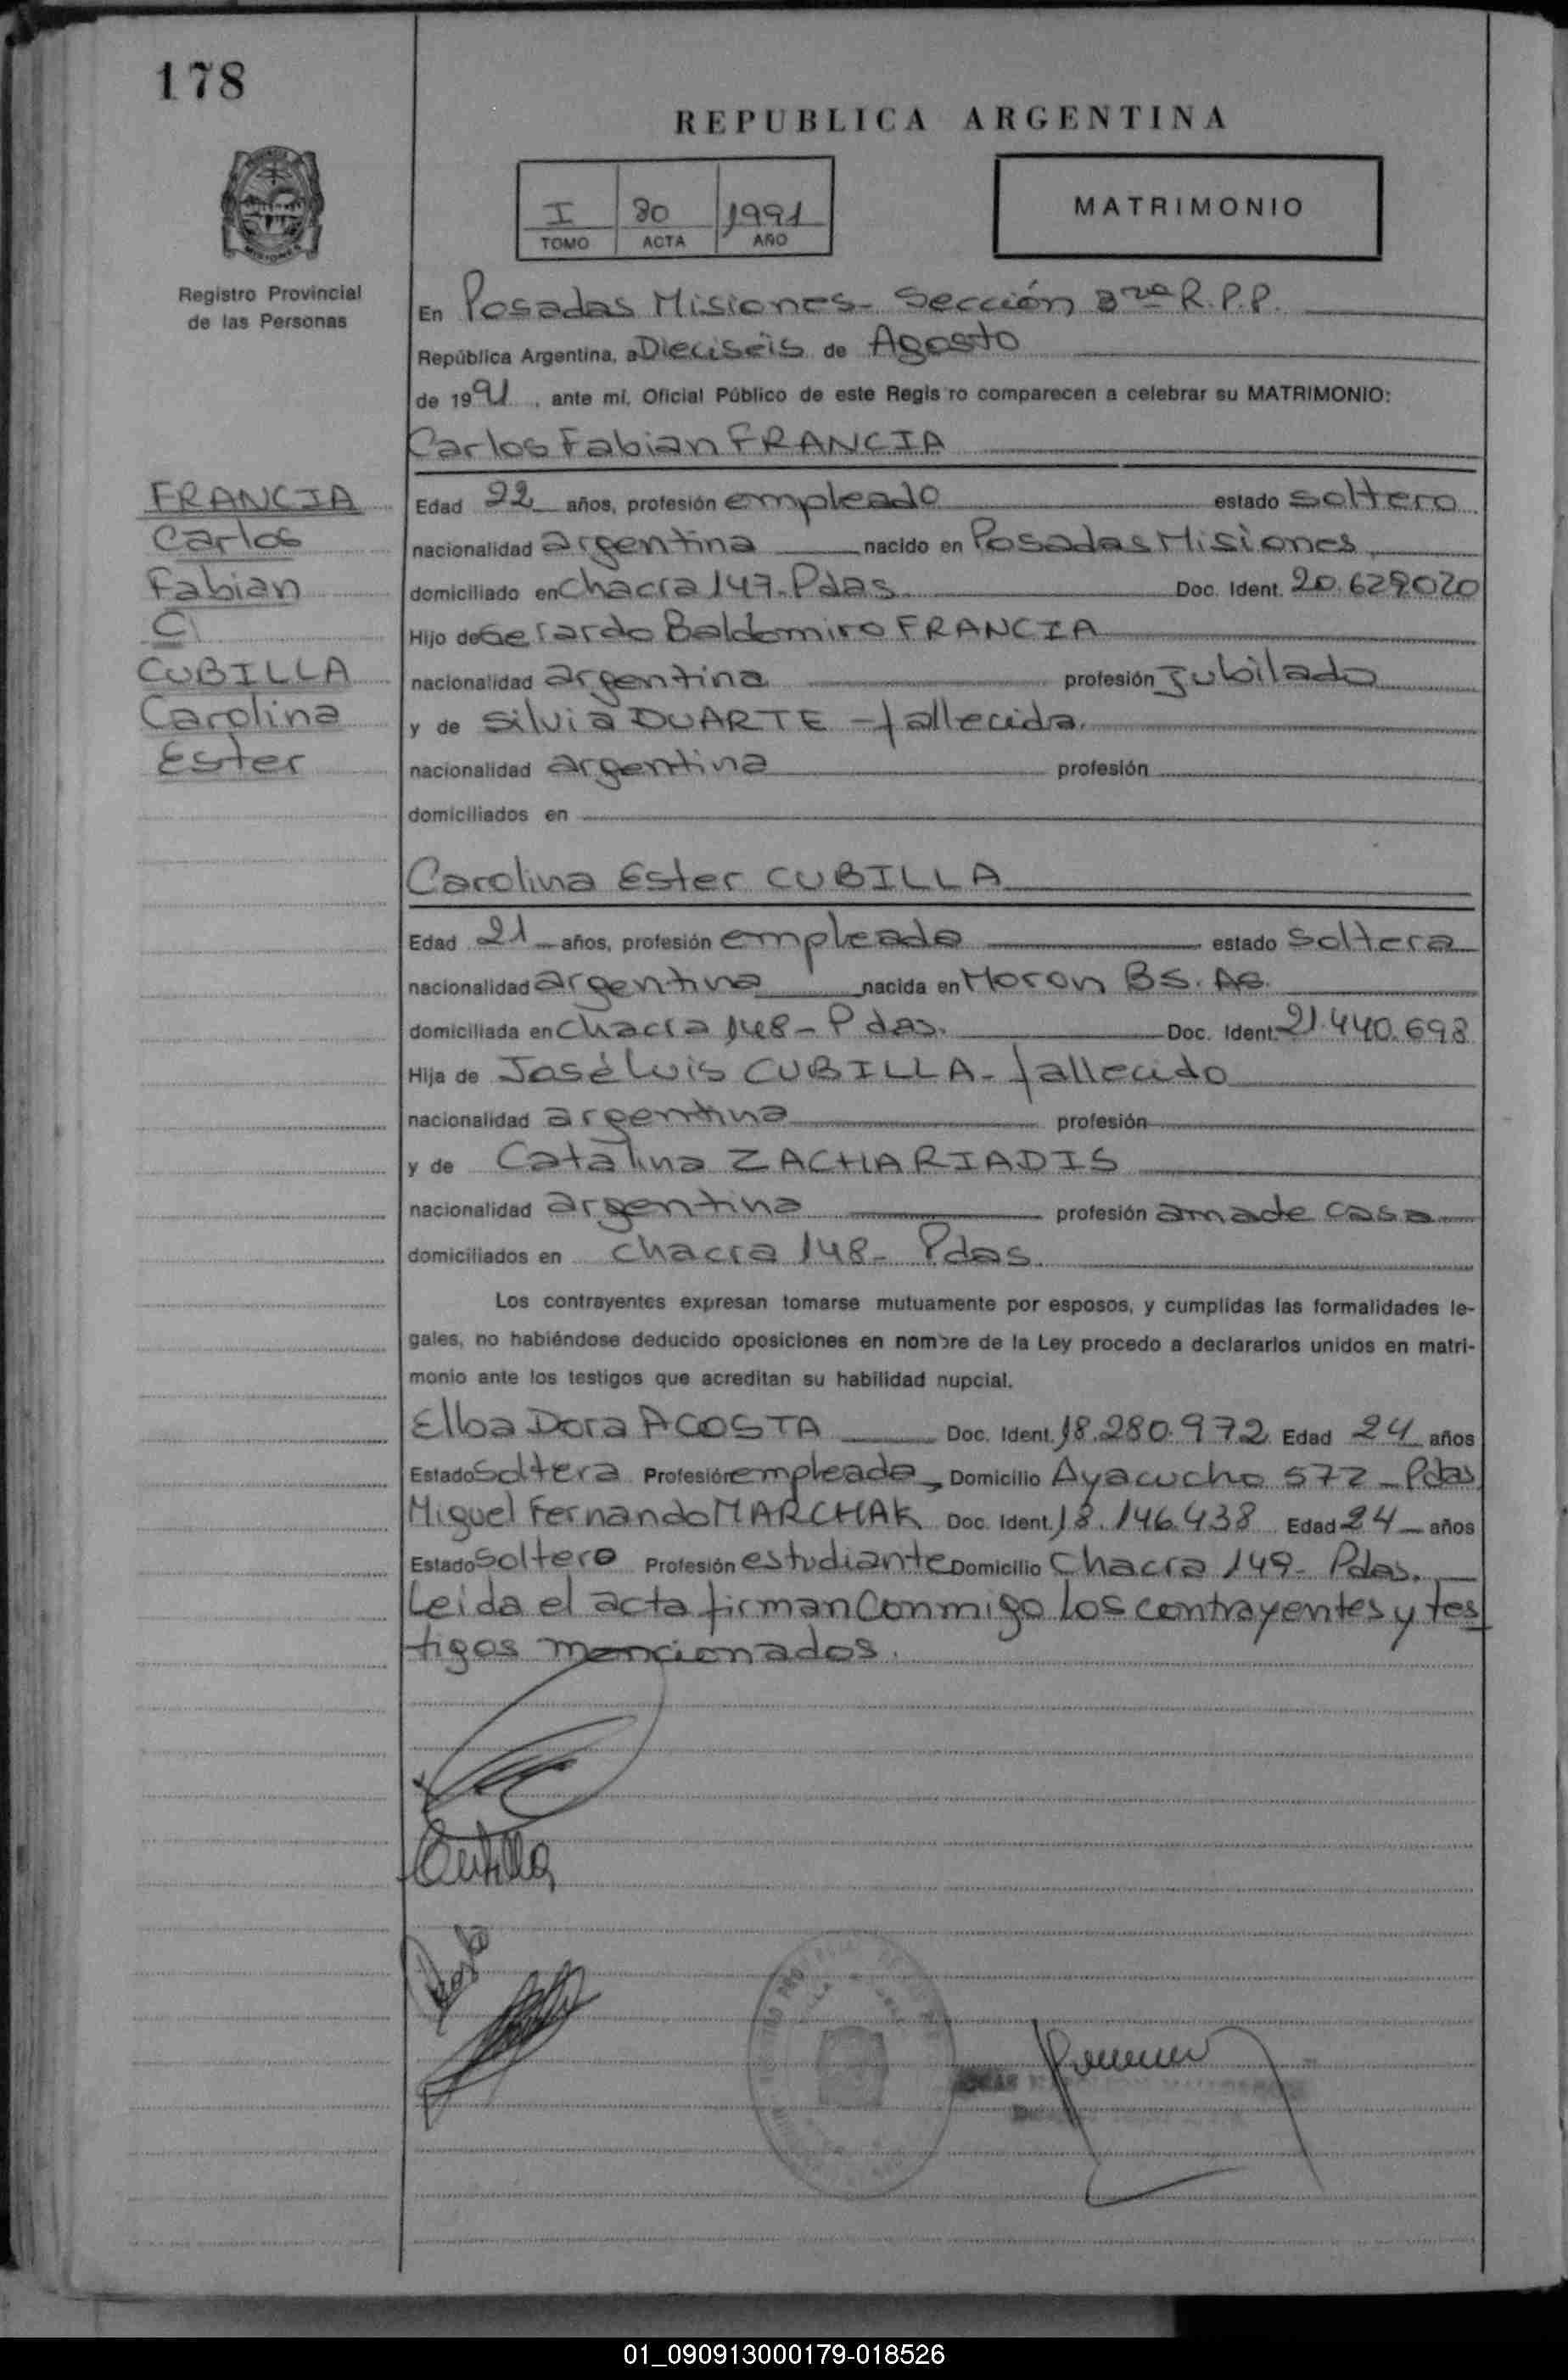 178
REPUBLICA ARGENTINA
I 80 1991
TOMO ACTA AÑO
MATRIMONIO
Registro Provincial
de las Personas
En Posadas Misiones- Sección 3ra R.P.P.
República Argentina, a Dieciseis de Agosto
de 1991, ante mí, Oficial Público de este Regis ro comparecen a celebrar su MATRIMONIO:
Carlos Fabian FRANCIA
FRANCIA
Carlos
Fabian
C/
CUBILLA
Carolina
Ester
Edad 22 años, profesión empleado estado soltero
nacionalidad argentina nacido en Posadas Misiones
domiciliado en Chacra 147-Pdas. Doc. Ident. 20.629020
Hijo de Gerardo Baldomiro FRANCIA
nacionalidad argentina profesión jubilado
y de Silvia DUARTE - fallecida.
nacionalidad argentina profesión
domiciliados en
Carolina Ester CUBILLA
Edad 21 años, profesión empleada estado soltera
nacionalidad argentina nacida en Moron BS. AS.
domiciliada en chacra 148- Pdas. Doc. Ident. 21.440.698
Hija de José Luis CUBILLA- fallecido
nacionalidad argentina profesión
y de Catalina ZACHARIADIS
nacionalidad argentina profesión ama de casa
domiciliados en chacra 148- Pdas.
Los contrayentes expresan tomarse mutuamente por esposos, y cumplidas las formalidades le-
gales, no habiéndose deducido oposiciones en nombre de la Ley procedo a declararlos unidos en matri-
monio ante los testigos que acreditan su habilidad nupcial.
Elba Dora ACOSTA Doc. Ident. 18.280.972 Edad 24 años
Estado Soltera Profesión empleada, Domicilio Ayacucho 572 - Pdas
Miguel Fernando MARCHAK Doc. Ident. 18.146.438 Edad 24 años
Estado Soltero Profesión estudiante Domicilio Chacra 149- Pdas.
Leida el acta firman Conmigo los contrayentes y tes
tigos mencionados.
Cubilla
01_090913000179-018526